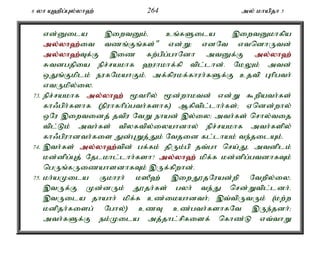 6 லா யுஹிப்புல்லாஹ் 264 அல் மாயிதா 5
என்னுடைய இறைவனும், உங்களுடைய இறைவனுமாகிய
அல்லாஹ்வை வணங்குங்கள்" என்று; எனவே எவனொருவன்
அல்லாஹ்வுக்கு இணை கற்பிப்பானோ அவனுக்கு அல்லாஹ்
சுவனபதியை நிச்சயமாக ஹராமாக்கி விட்டான். மேலும் அவன்
ஒதுங்குமிடம் நரகமேயாகும். அக்கிரமக்காரர்களுக்கு உதவி புரிபவர்
எவருமில்லை.
73. நிச்சயமாக அல்லாஹ் மூவரில் மூன்றாமவன் என்று கூறியவர்கள்
காஃபிர்களாக (நிராகரிப்பவர்களாக) ஆகிவிட்டார்கள்; ஏனென்றால்
ஒரே இறைவனைத் தவிர வேறு நாயன் இல்லை; அவர்கள் சொல்வதை
விட்டும் அவர்கள் விலகவில்லையானால் நிச்சயமாக அவர்களில்
காஃபிரானவர்களை துன்புறுத்தும் வேதனை கட்டாயம் வந்தடையும்.
74. இவர்கள் அல்லாஹ்வின் பக்கம் திரும்பி தவ்பா செய்து, அவனிடம்
மன்னிப்புத் தேடமாட்டார்களா? அல்லாஹ் மிக்க மன்னிப்பவனாகவும்
பெருங்கருணையாளனாகவும் இருக்கிறான்.
75. மர்யமுடைய குமாரர் மஸீஹ் இறைதூதரேயன்றி வேறில்லை.
இவருக்கு முன்னரும் தூதர்கள் பலர் வந்து சென்றுவிட்டனர்.
இவருடைய தாயார் மிக்க உண்மையானவர்; இவ்விருவரும் (மற்ற
மனிதர்களைப் போல்) உணவு உண்பவர்களாகவே இருந்தனர்;
அவர்களுக்கு நம்முடைய அத்தாட்சிகளைக் கொண்டு எவ்வாறு